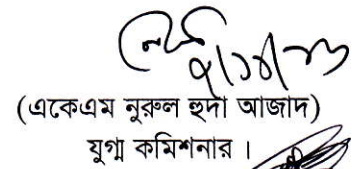 (একেএম নুরুল হুদা আজাদ)
যুগ্ম কমিশনার ।